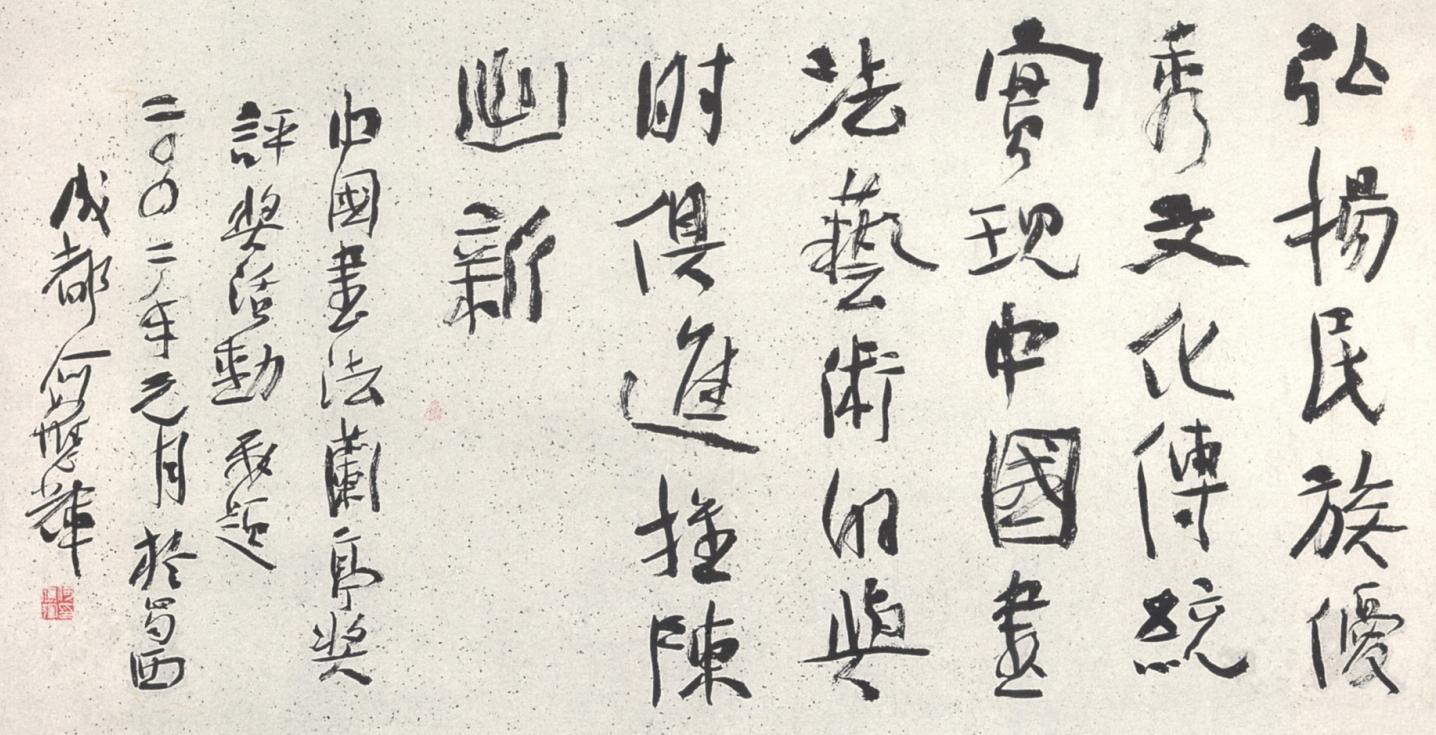 弘揚民族優
秀文化傳統
實現中國書
法藝術的與
時俱進推陳
出新
中國書法蘭亭獎
評獎活動 敬題
二〇〇二年元月於蜀西
成都何應輝